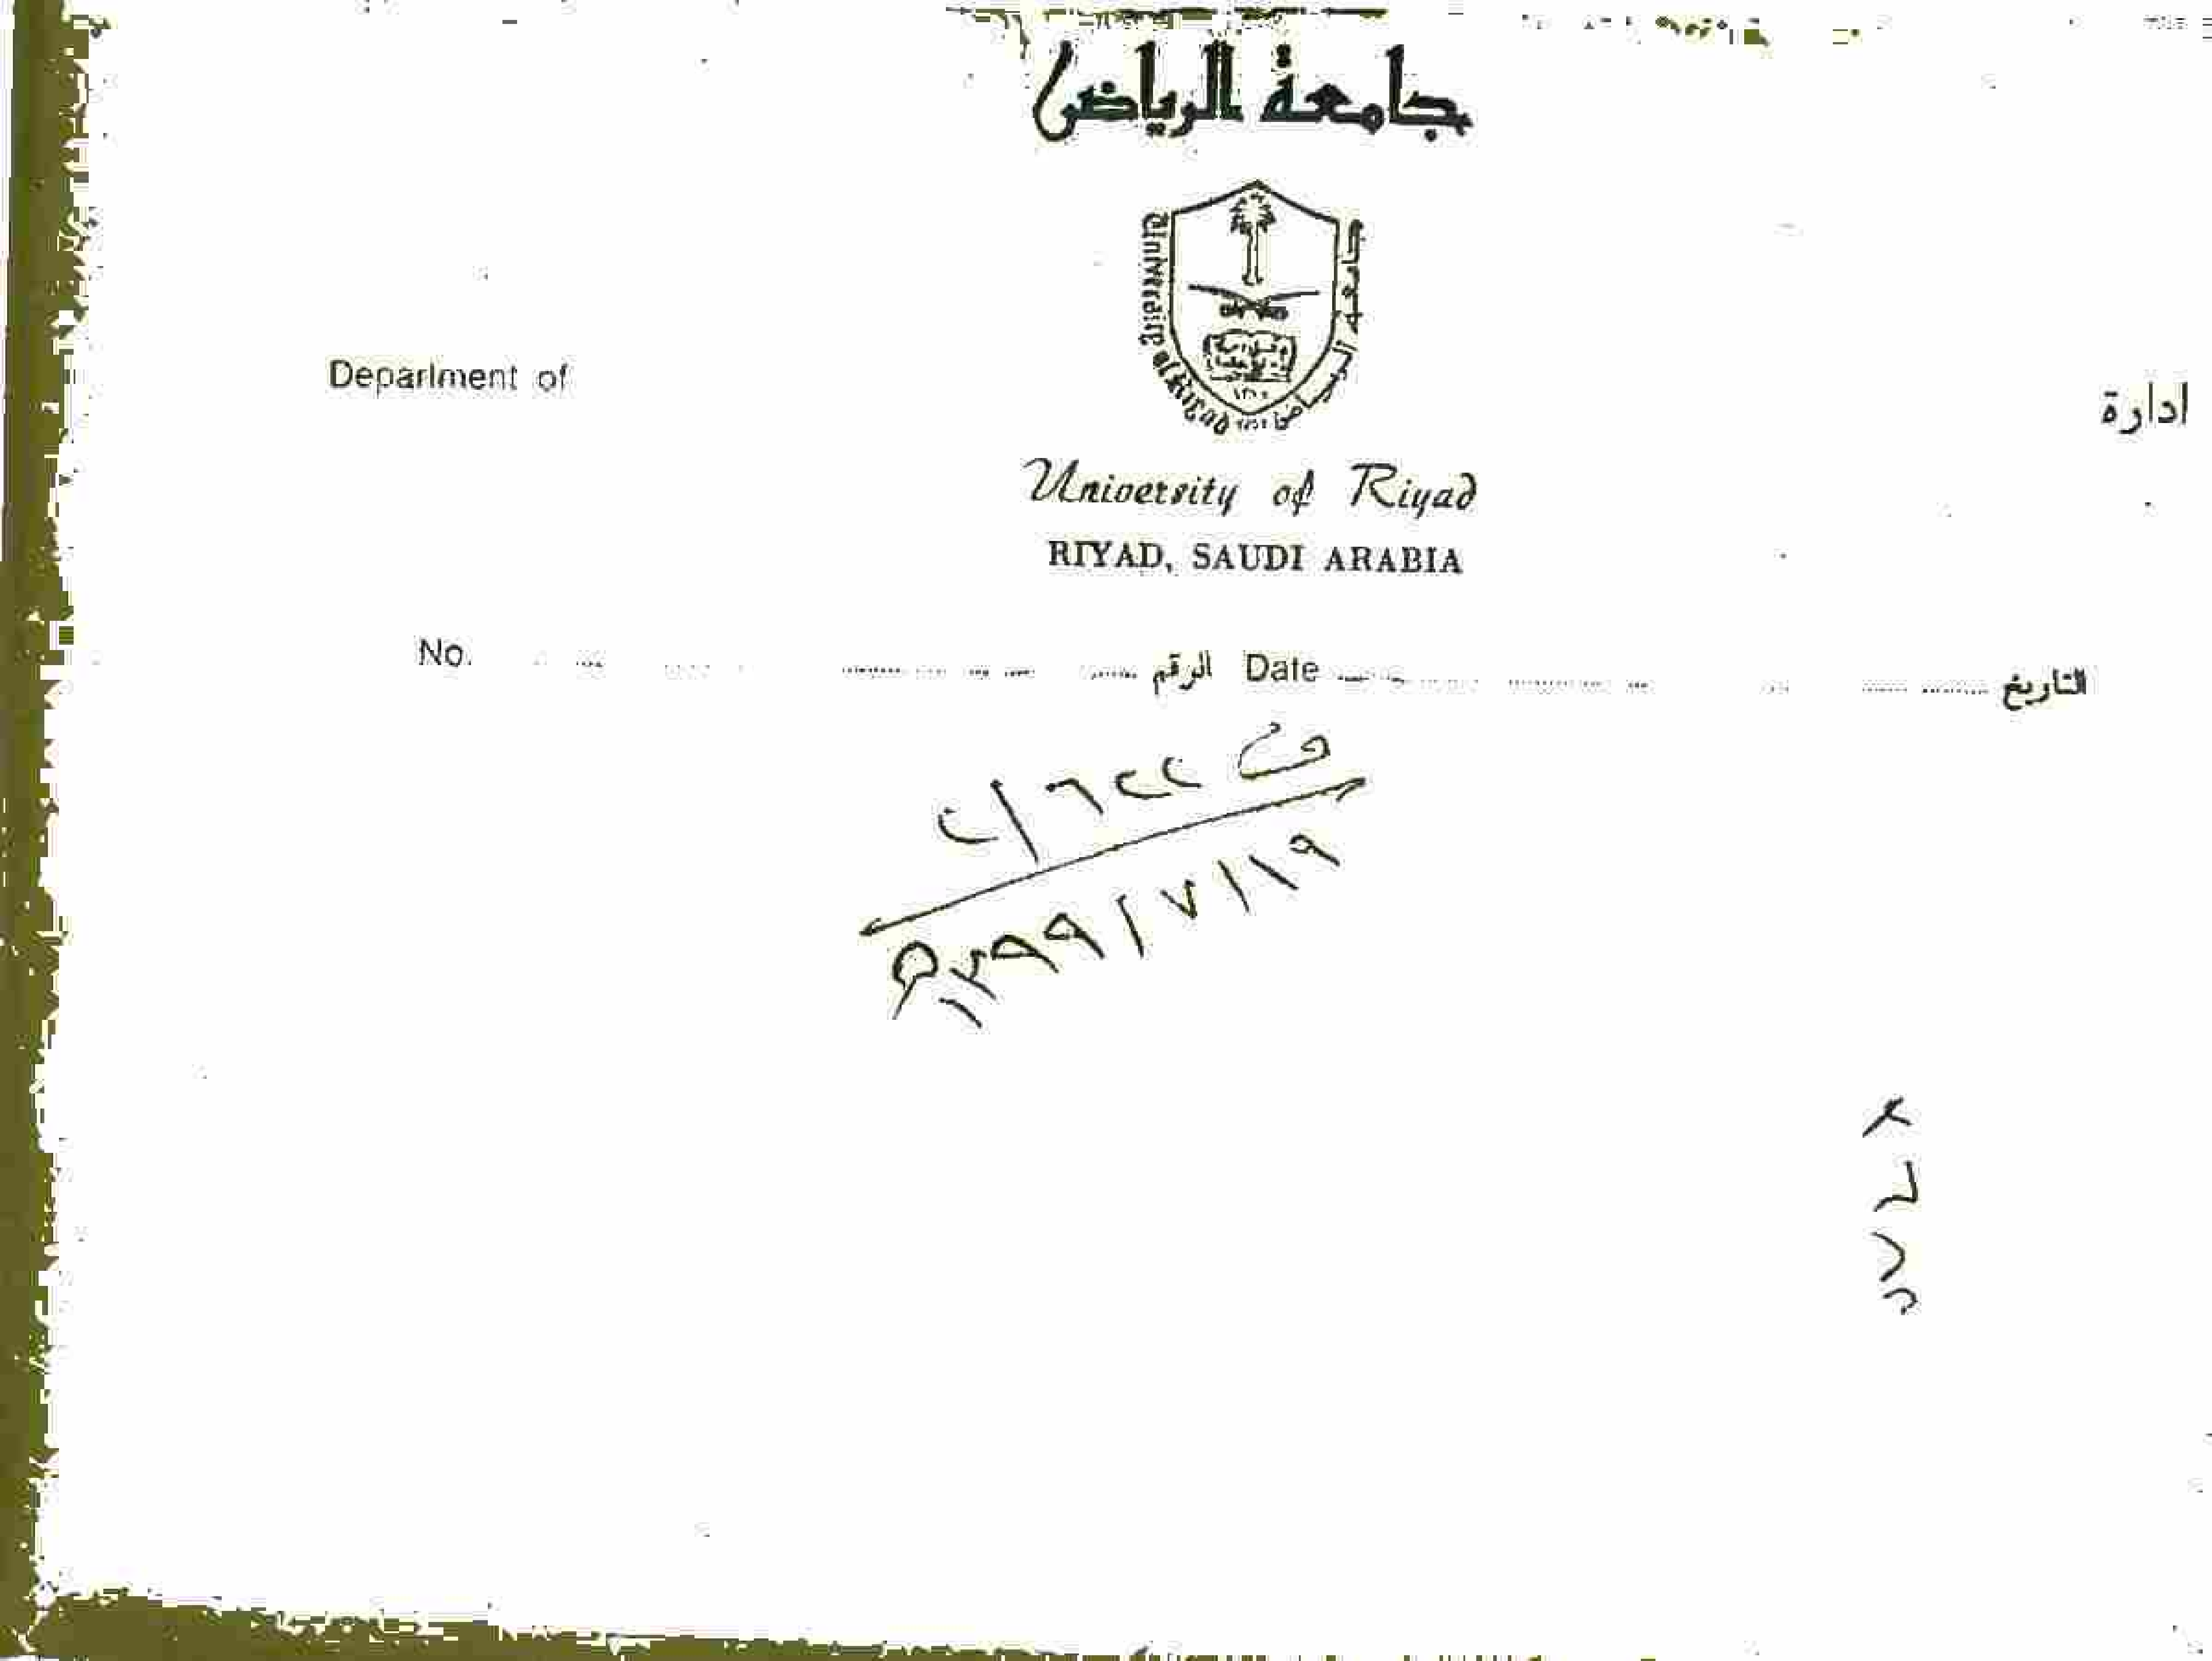 جامعة الرياض
University of Riyad جامعة الرياض
Department of ادارة
University of Riyad
RIYAD, SAUDI ARABIA
No. الرقم Date التاريخ
ف ٦٢٢ / ٢
١٩ / ٧ / ١٣٩٩ هـ